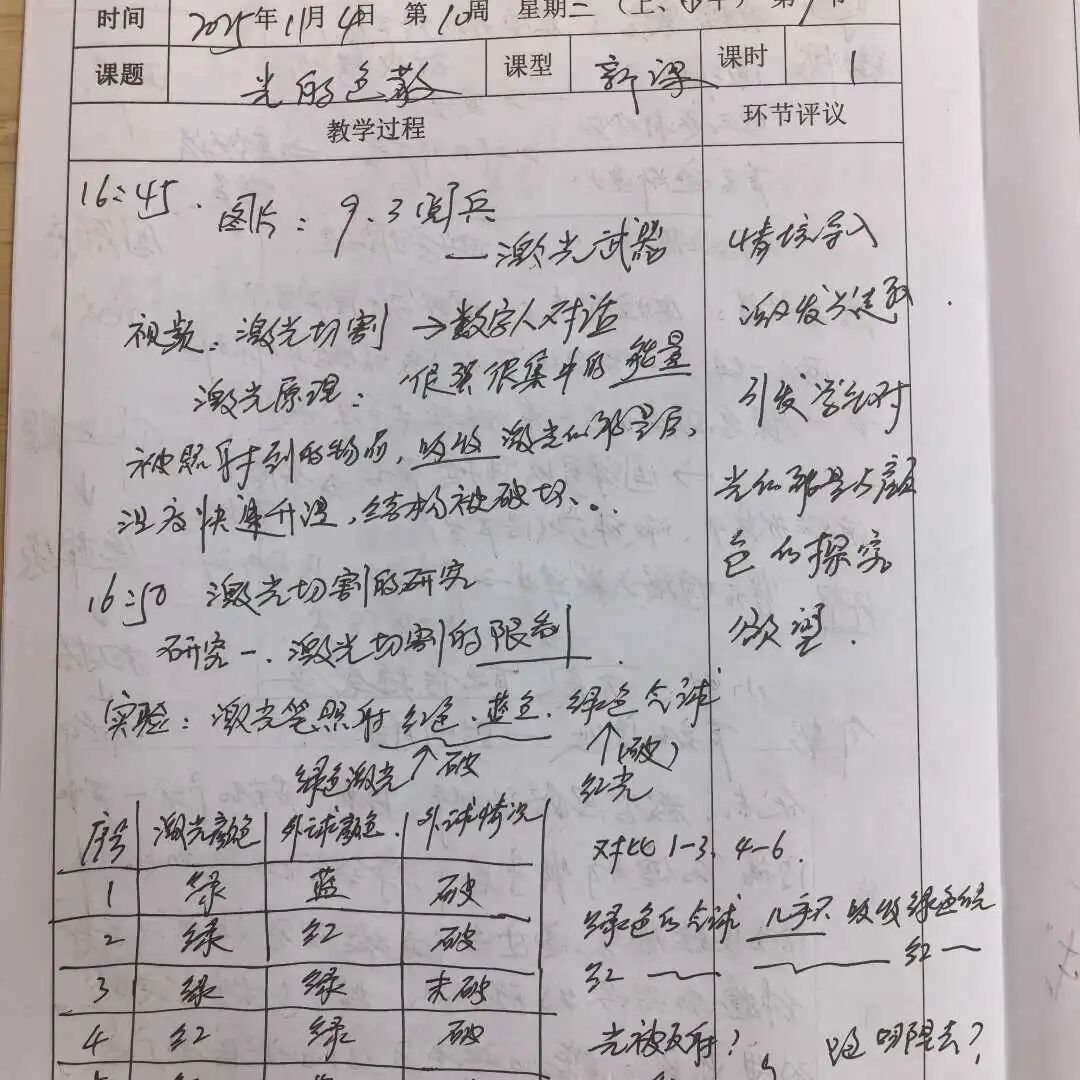 时间 2025年11月4日 第10周 星期二（上、下午）第 节
课题 光的色散 课型 新课 课时 1
教学过程 环节评议
16:45. 图片：9.3阅兵
—激光武器
视频：激光切割 →数字人对话
激光原理：很强很集中的能量
被照射到的物质，吸收激光的能量后，
温度快速升温，结构被破坏...
16:50 激光切割的研究
研究一、激光切割的限制
实验：激光笔照射红色、蓝色、绿色气球
绿色激光 ↑破 ↑(破)
红光
序号 激光颜色 外球颜色 外球情况
1 绿 蓝 破
2 绿 红 破
3 绿 绿 未破
4 红 绿 破
对比1-3、4-6.
绿色的气球几乎不吸收绿色的光
红 — 红 —
光被反射？ 跑哪里去？
情境导入
激发兴趣
引发学生对
光的能量与颜
色的探究
欲望.